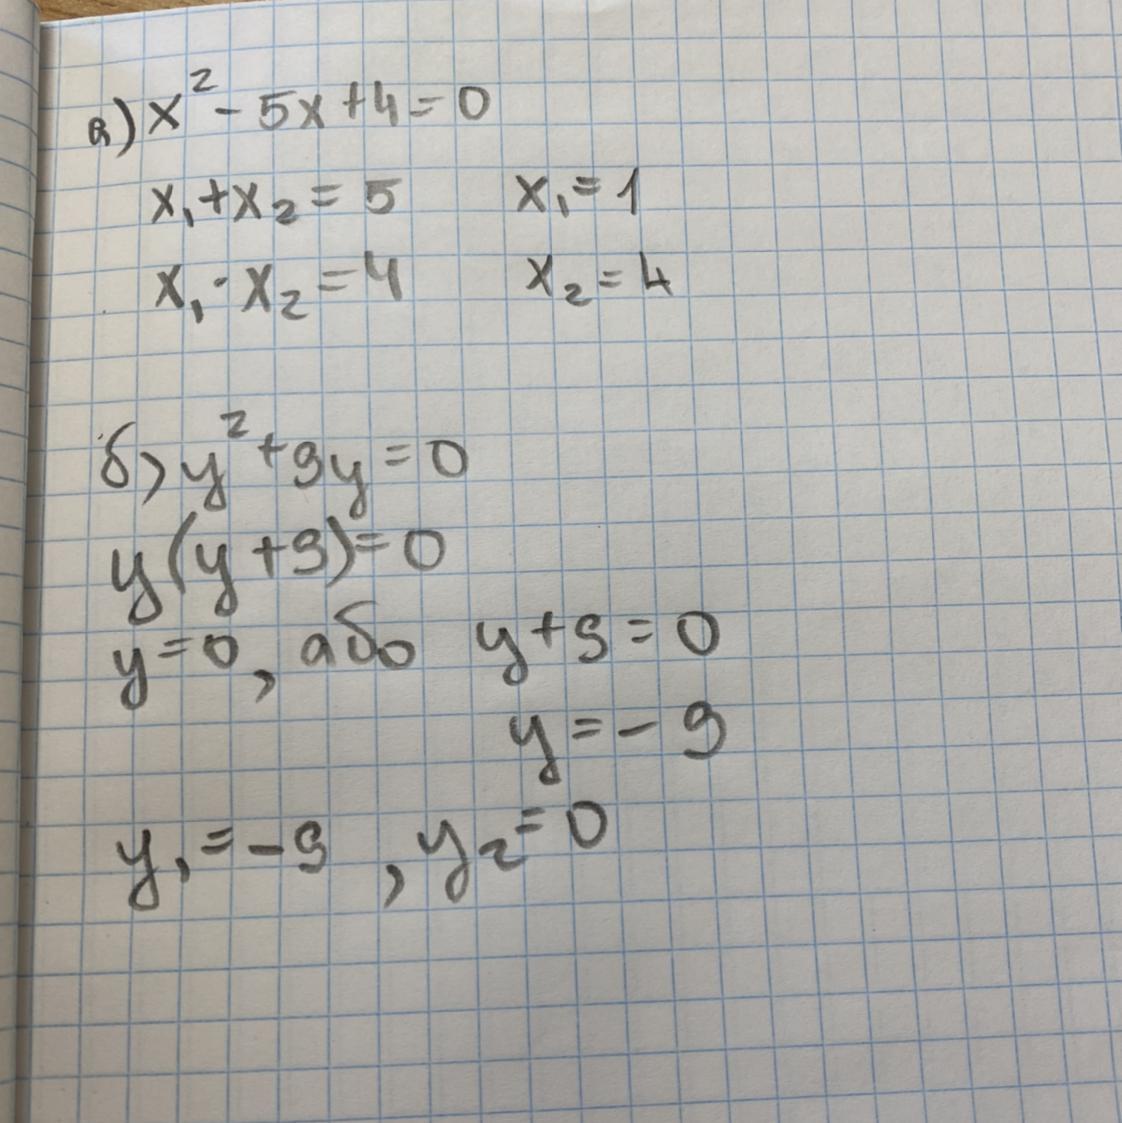 а) x² - 5x + 4 = 0
x₁ + x₂ = 5 x₁ = 1
x₁ · x₂ = 4 x₂ = 4
б) y² + 9y = 0
y(y + 9) = 0
y = 0, або y + 9 = 0
y = - 9
y₁ = - 9, y₂ = 0